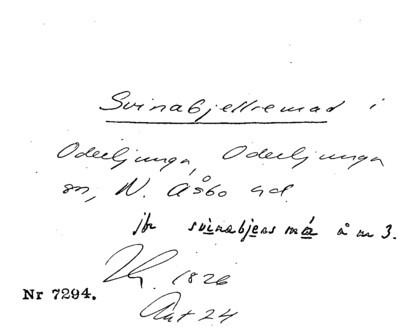 Svinabjellremad i
Oderljunga, Oderljunga
sn, N. Åsbo hd.
jfr svinabjens må å nr 3.
1826
Nr 7294.
Akt 24